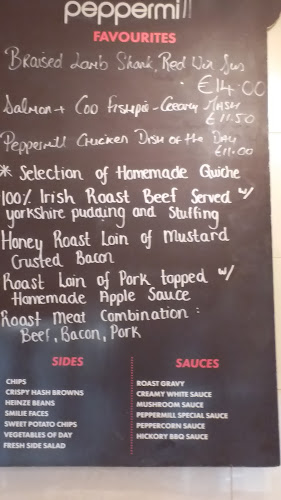 peppermill
FAVOURITES
Braised Lamb Shank, Red Wine Jus
€14.00
Salmon + Cod Fishpie - Creamy Mash
€11.50
Peppermill Chicken Dish of the Day
€11.00
* Selection of Homemade Quiche
100% Irish Roast Beef Served w/
yorkshire pudding and Stuffing
Honey Roast Loin of Mustard
Crusted Bacon
Roast Loin of Pork topped w/
Homemade Apple Sauce
Roast Meat Combination :
Beef, Bacon, Pork
SIDES
CHIPS
CRISPY HASH BROWNS
HEINZE BEANS
SMILIE FACES
SWEET POTATO CHIPS
VEGETABLES OF DAY
FRESH SIDE SALAD
SAUCES
ROAST GRAVY
CREAMY WHITE SAUCE
MUSHROOM SAUCE
PEPPERMILL SPECIAL SAUCE
PEPPERCORN SAUCE
HICKORY BBQ SAUCE